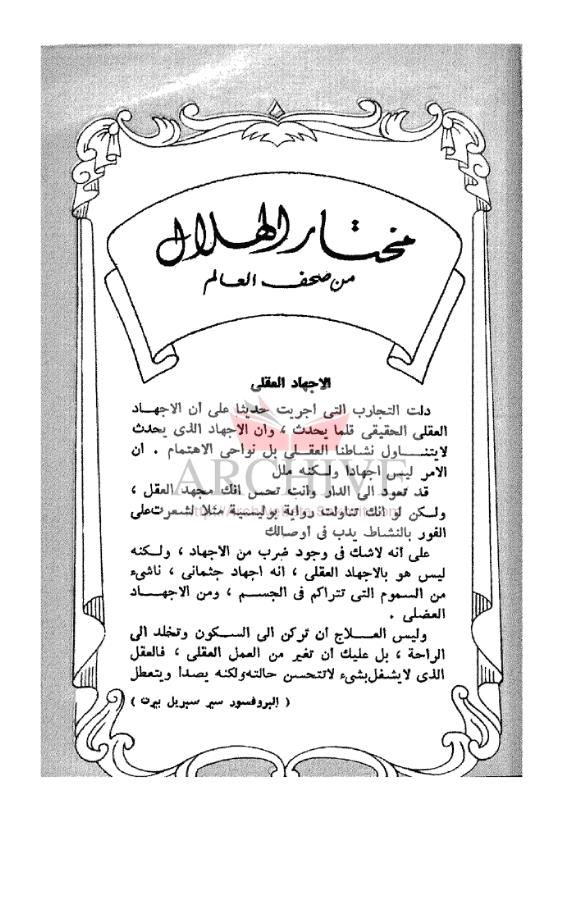 مختار الهلال
من صحف العالم
الاجهاد العقلى
دلت التجارب التى اجريت حديثا على أن الاجهــاد
العقلى الحقيقى قلما يحدث ، وان الاجهاد الذى يحدث
لايتنــاول نشاطنا العقــلى بل نواحى الاهتمام . ان
الامر ليس اجهادا ولكنه ملل
قد تعود الى الدار وانت تحس انك مجهد العقل ،
ولكن لو انك تناولت رواية بوليسية مثلا لشعرت على
الفور بالنشاط يدب فى أوصالك
على انه لاشك فى وجود ضرب من الاجهاد ، ولكنه
ليس هو بالاجهاد العقلى ، انه اجهاد جثمانى ، ناشىء
من السموم التى تتراكم فى الجســم ، ومن الاجهــاد
العضلى .
وليس العــلاج أن تركن الى السـكون وتخلد الى
الراحة ، بل عليك أن تغير من العمل العقلى ، فالعقل
الذى لايشغل بشىء لاتتحسن حالته ولكنه يصدأ ويتعطل
( البروفسور سير سيريل بيرت )
ARCHIVE